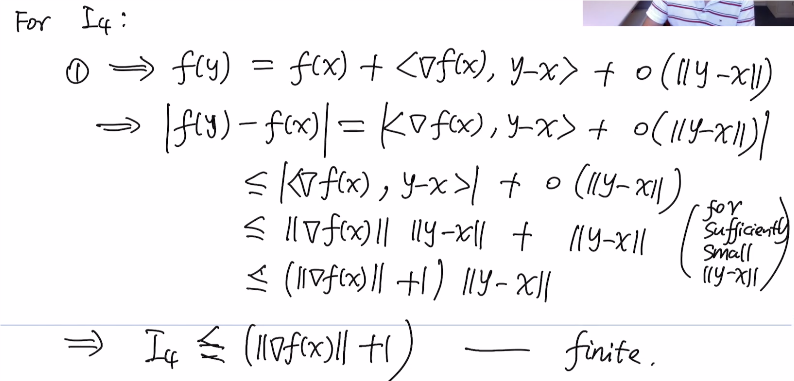 For I₄:
① ⇒ f(y) = f(x) + <∇f(x), y-x> + o(||y-x||)
⇒ |f(y) - f(x)| = |<∇f(x), y-x> + o(||y-x||)|
≤ |<∇f(x), y-x>| + o(||y-x||)
≤ ||∇f(x)|| ||y-x|| + ||y-x|| (for sufficiently small ||y-x||)
≤ (||∇f(x)|| +1) ||y-x||
⇒ I₄ ≦ (||∇f(x)|| +1) — finite.